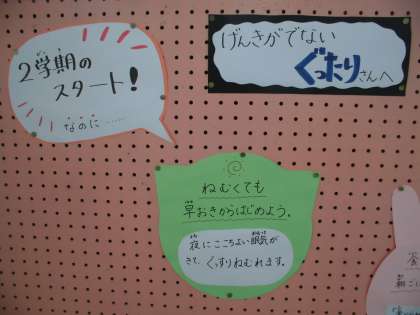 2学期の
スタート!
なのに……
げんきがでない
ぐったりさんへ
ねむくても
草おきからはじめよう。
夜にここちよい眠気が
きて、ぐっすりねむれます。